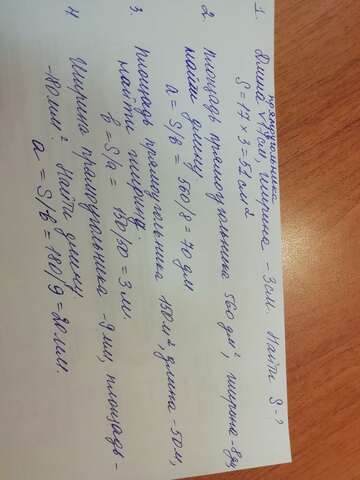 прямоугольника
1. Длина 17см, ширина - 3см. Найти S-?
S = 17 × 3 = 51 см2
2. Площадь прямоугольника 560 дм², ширина - 8дм
найти длину.
a = S/b = 560/8 = 70 дм
3. Площадь прямоугольника 150м², длина - 50м,
найти ширину.
b = S/a = 150/50 = 3 м.
4 Ширина прямоугольника - 9мм, площадь -
- 180мм² Найти длину.
a = S/b = 180/9 = 20мм.